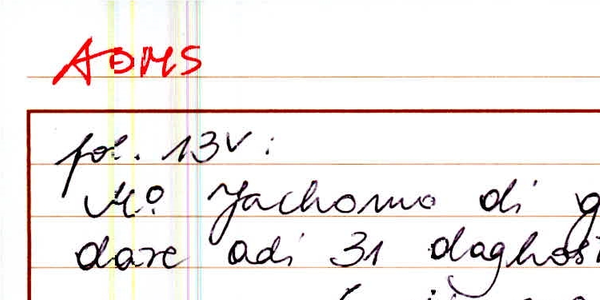 AOMS
fol. 13v:
Mo. Jachomo di
dare adi 31 daghos